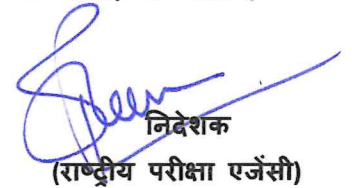 निदेशक
(राष्ट्रीय परीक्षा एजेंसी)